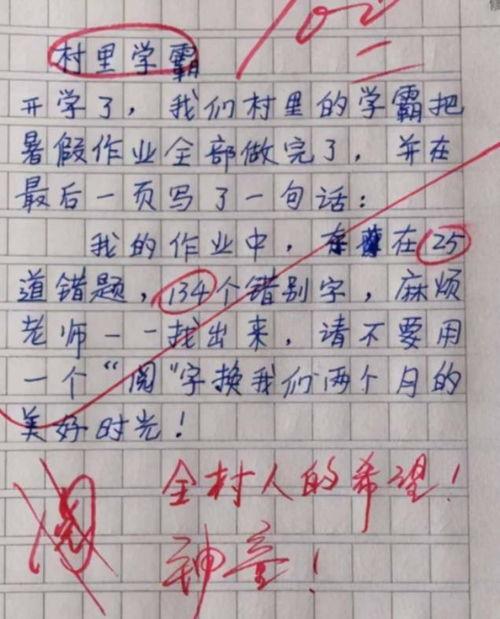 100
村里学霸
开学了，我们村里的学霸把
暑假作业全部做完了，并在
最后一页写了一句话：
我的作业中，存在25
道错题，134个错别字，麻烦
老师一一找出来，请不要用
一个“阅”字换我们两个月的
美好时光！
全村人的希望！
神童！
阅